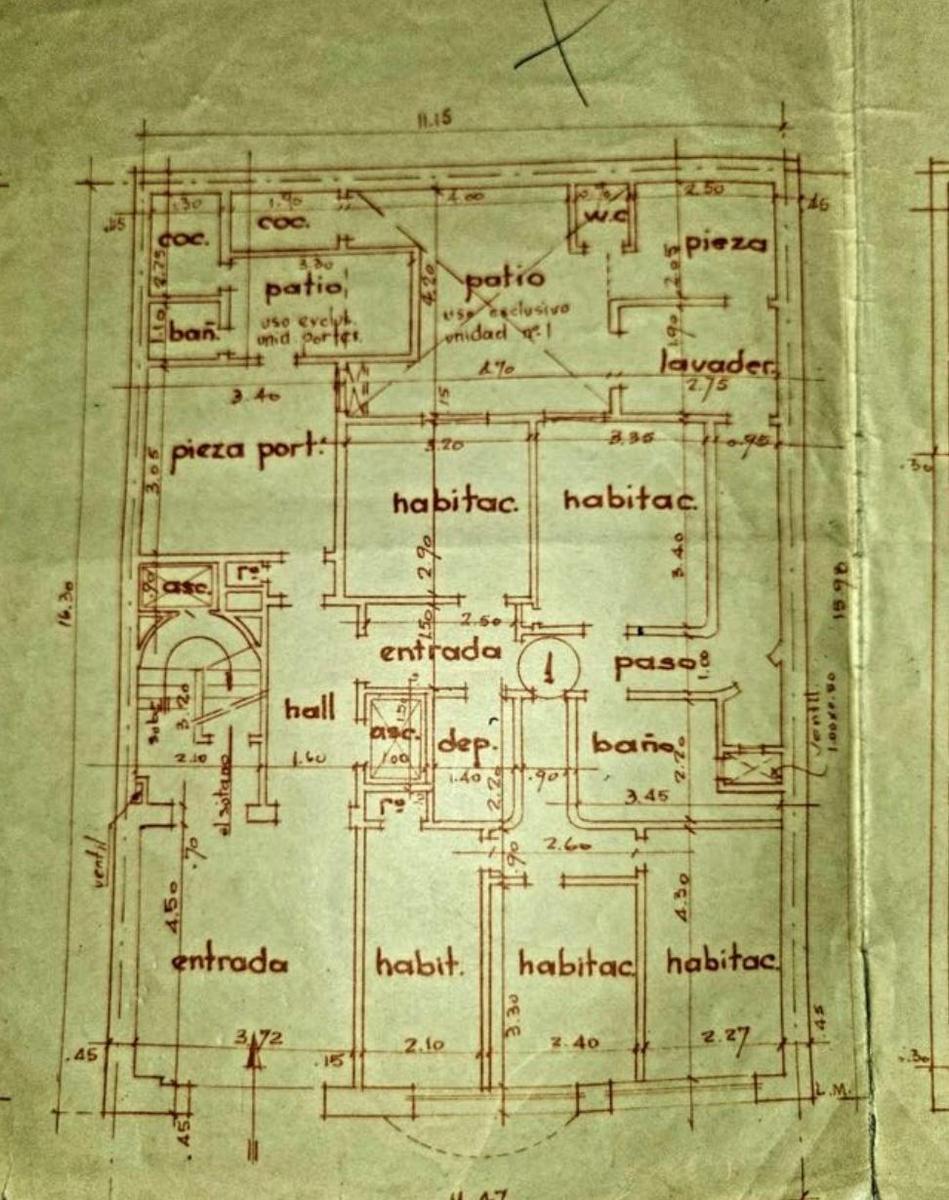 11.15
1.90
4.00
2.50
coc.
coc.
w.c
pieza
2.75
3.30
patio
4.20
patio
2.05
uso exclusivo
unidad nº1
1.10
bañ.
1.90
lavader.
4.70
2.75
3.40
.15
3.20
3.35
0.95
pieza port.
3.05
habitac.
habitac.
2.90
3.40
.30
asc.
.90
16.30
15.98
2.50
1.50
entrada
1
paso
1.00
hall
asc.
dep.
baño
ventil
1.00x0.80
sube
3.20
2.10
1.60
1.00
1.40
.90
2.20
2.70
3.45
el sotano
ventil
.70
2.60
.90
4.50
4.30
entrada
habit.
habitac.
habitac.
3.30
.45
3.72
.15
2.10
2.40
2.27
.45
.30
L.M.
.45
11.47